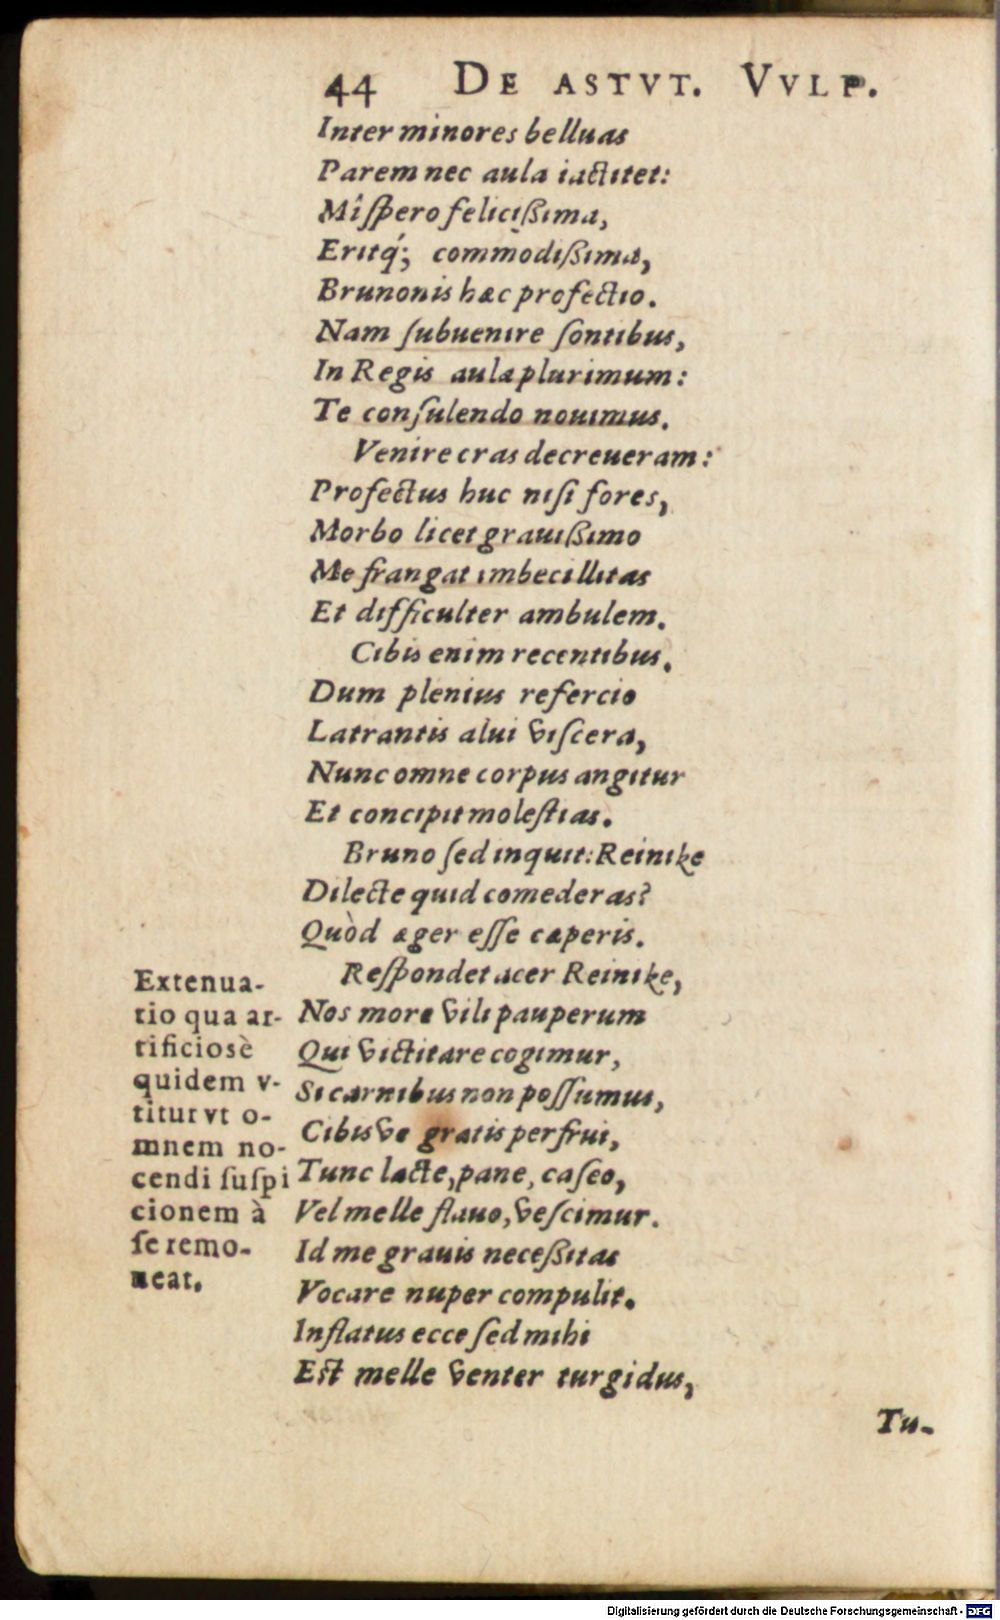 44 DE ASTVT. VVLP.
Inter minores belluas
Parem nec aula iactitet:
Mî spero felicißima,
Eritq́; commodißima,
Brunonis hæc profectio.
Nam ſubuenire ſontibus,
In Regis aula plurimum:
Te conſulendo nouimus.
Venire cras decreueram:
Profectus huc niſi fores,
Morbo licet grauißimo
Me frangat imbecillitas
Et difficulter ambulem.
Cibis enim recentibus,
Dum plenius refercio
Latrantis alui viſcera,
Nunc omne corpus angitur
Et concipit moleſtias.
Bruno ſed inquit: Reinike
Dilecte quid comederas?
Quòd æger eſſe cæperis.
Reſpondet acer Reinike,
Nos more vili pauperum
Qui victitare cogimur,
Si carnibus non poſſumus,
Cibis ve gratis perfrui,
Tunc lacte, pane, caſeo,
Vel melle flauo, veſcimur.
Id me grauis neceßitas
Vocare nuper compulit.
Inflatus ecce ſed mihi
Eſt melle venter turgidus,
Extenua-
tio qua ar-
tificiosè
quidem v-
titur vt o-
mnem no-
cendi ſuſpi
cionem à
ſe remo-
neat.
Tu-
Digitalisierung gefördert durch die Deutsche Forschungsgemeinschaft - DFG